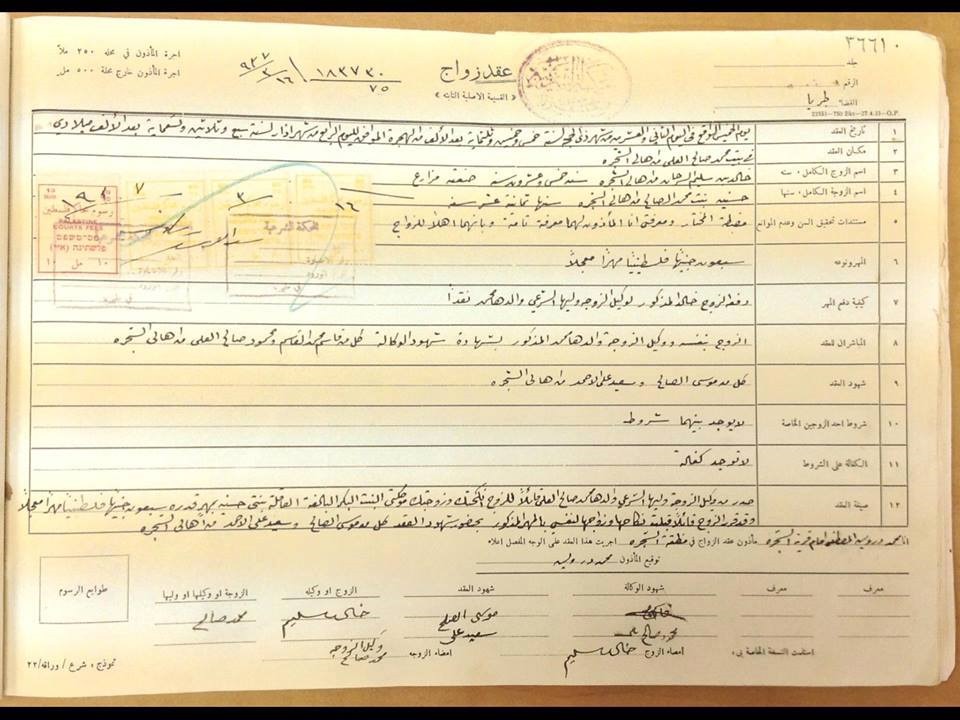 ٣٦٦١٠
اجرة المأذون في محله ٢٥٠ ملاً
اجرة المأذون خارج محله ٥٠٠ مل
٩٣٧/٣/١٦
١٨٣٧٣٠
٧٥
عقد زواج
« القسيمة الاصلية الثالثة »
جلد
الرقم
القضاء طبريا
١ تاريخ العقد يوم الخميس الواقع في اليوم الثاني والعشرين من شهر ذي الحجة لسنة خمس وخمسين وثلثماية بعد الألف من الهجرة الموافق لليوم الرابع من شهر اذار لسنة سبع وثلاثين وتسعماية بعد الألف ميلادي
٢ مكان العقد في بيت محمد صالح العلي من اهالي الشجره
٣ اسم الزوج الكامل، سنه خالد بن سليم من اهالي الشجره سنه خمس وعشرون سنه صنعته مزارع
٤ اسم الزوجة الكامل، سنها حسنيه بنت محمد الصالح من اهالي الشجره سنها ثمانة عشر سنه
٥ مستندات تحقيق السن وعدم الموانع مضبطة المختار ومعرفتي انا المأذون لهما معرفة تامة وبانهما اهلا للزواج
٦ المهر ونوعه سبعون جنيها فلسطينيا مهرا معجلاً
٧ كيفية دفع المهر دفع الزوج خالد المذكور لوكيل الزوجه وليها الشرعي والدها محمد نقداً
٨ المباشران للعقد الزوج بنفسه ووكيل الزوجة والدها محمد المذكور بشهادة شهود الوكالة كل من قاسم محمد القاسم ومحمود صالح العلي من اهالي الشجره
٩ شهود العقد كل من موسى الصالح وسعيد علي الاحمد من اهالي الشجره
١٠ شروط احد الزوجين الخاصة لا يوجد بينهما شروط
١١ الكفالة على الشروط لا توجد كفالة
١٢ صيغة العقد صدر من وكيل الزوجة وليها الشرعي والدها محمد صالح العلي قائلاً للزوج انكحتك وزوجتك موكلتي البنت البكر البالغة العاقلة بنتي حسنيه بمهر قدره سبعون جنيها فلسطينيا مهرا معجلاً
وقد قرر الزوج قائلاً قبلت نكاحها وزواجها لنفسي بالمهر المذكور بحضور شهود العقد كل من موسى الصالح وسعيد علي الاحمد من اهالي الشجره
انا محمد درويش المصطفى امام قرية الشجره مأذون عقد الزواج في منطقة الشجره اجريت هذا العقد على الوجه المفصل اعلاه
توقيع المأذون محمد درويش
رسوم محاكم فلسطين
PALESTINE
COURTS FEES
١٠ مل ١٠
المحكمة الشرعية
١٦ ٣ ٧
معرف
معرف
شهود الوكالة
شهود العقد
الزوج او وكيله
الزوجة او وكيلها او وليها
طوابع الرسوم
محمود صالح
موسى الصالح
سعيد علي
خالد سليم
محمد صالح
استلمت النسخة الخاصة بي،
امضاء الزوج خالد سليم
امضاء الزوجه وكيل الزوجه
محمد صالح
نموذج، شرع / وراقة/٢٢